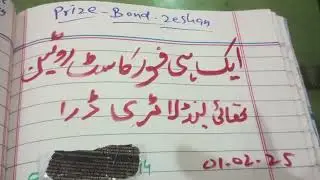 Prize - Bond. zeshan
ایک ہی فور کاسٹ روٹین
تھائی لینڈ لاٹری ڈرا
01.02.25